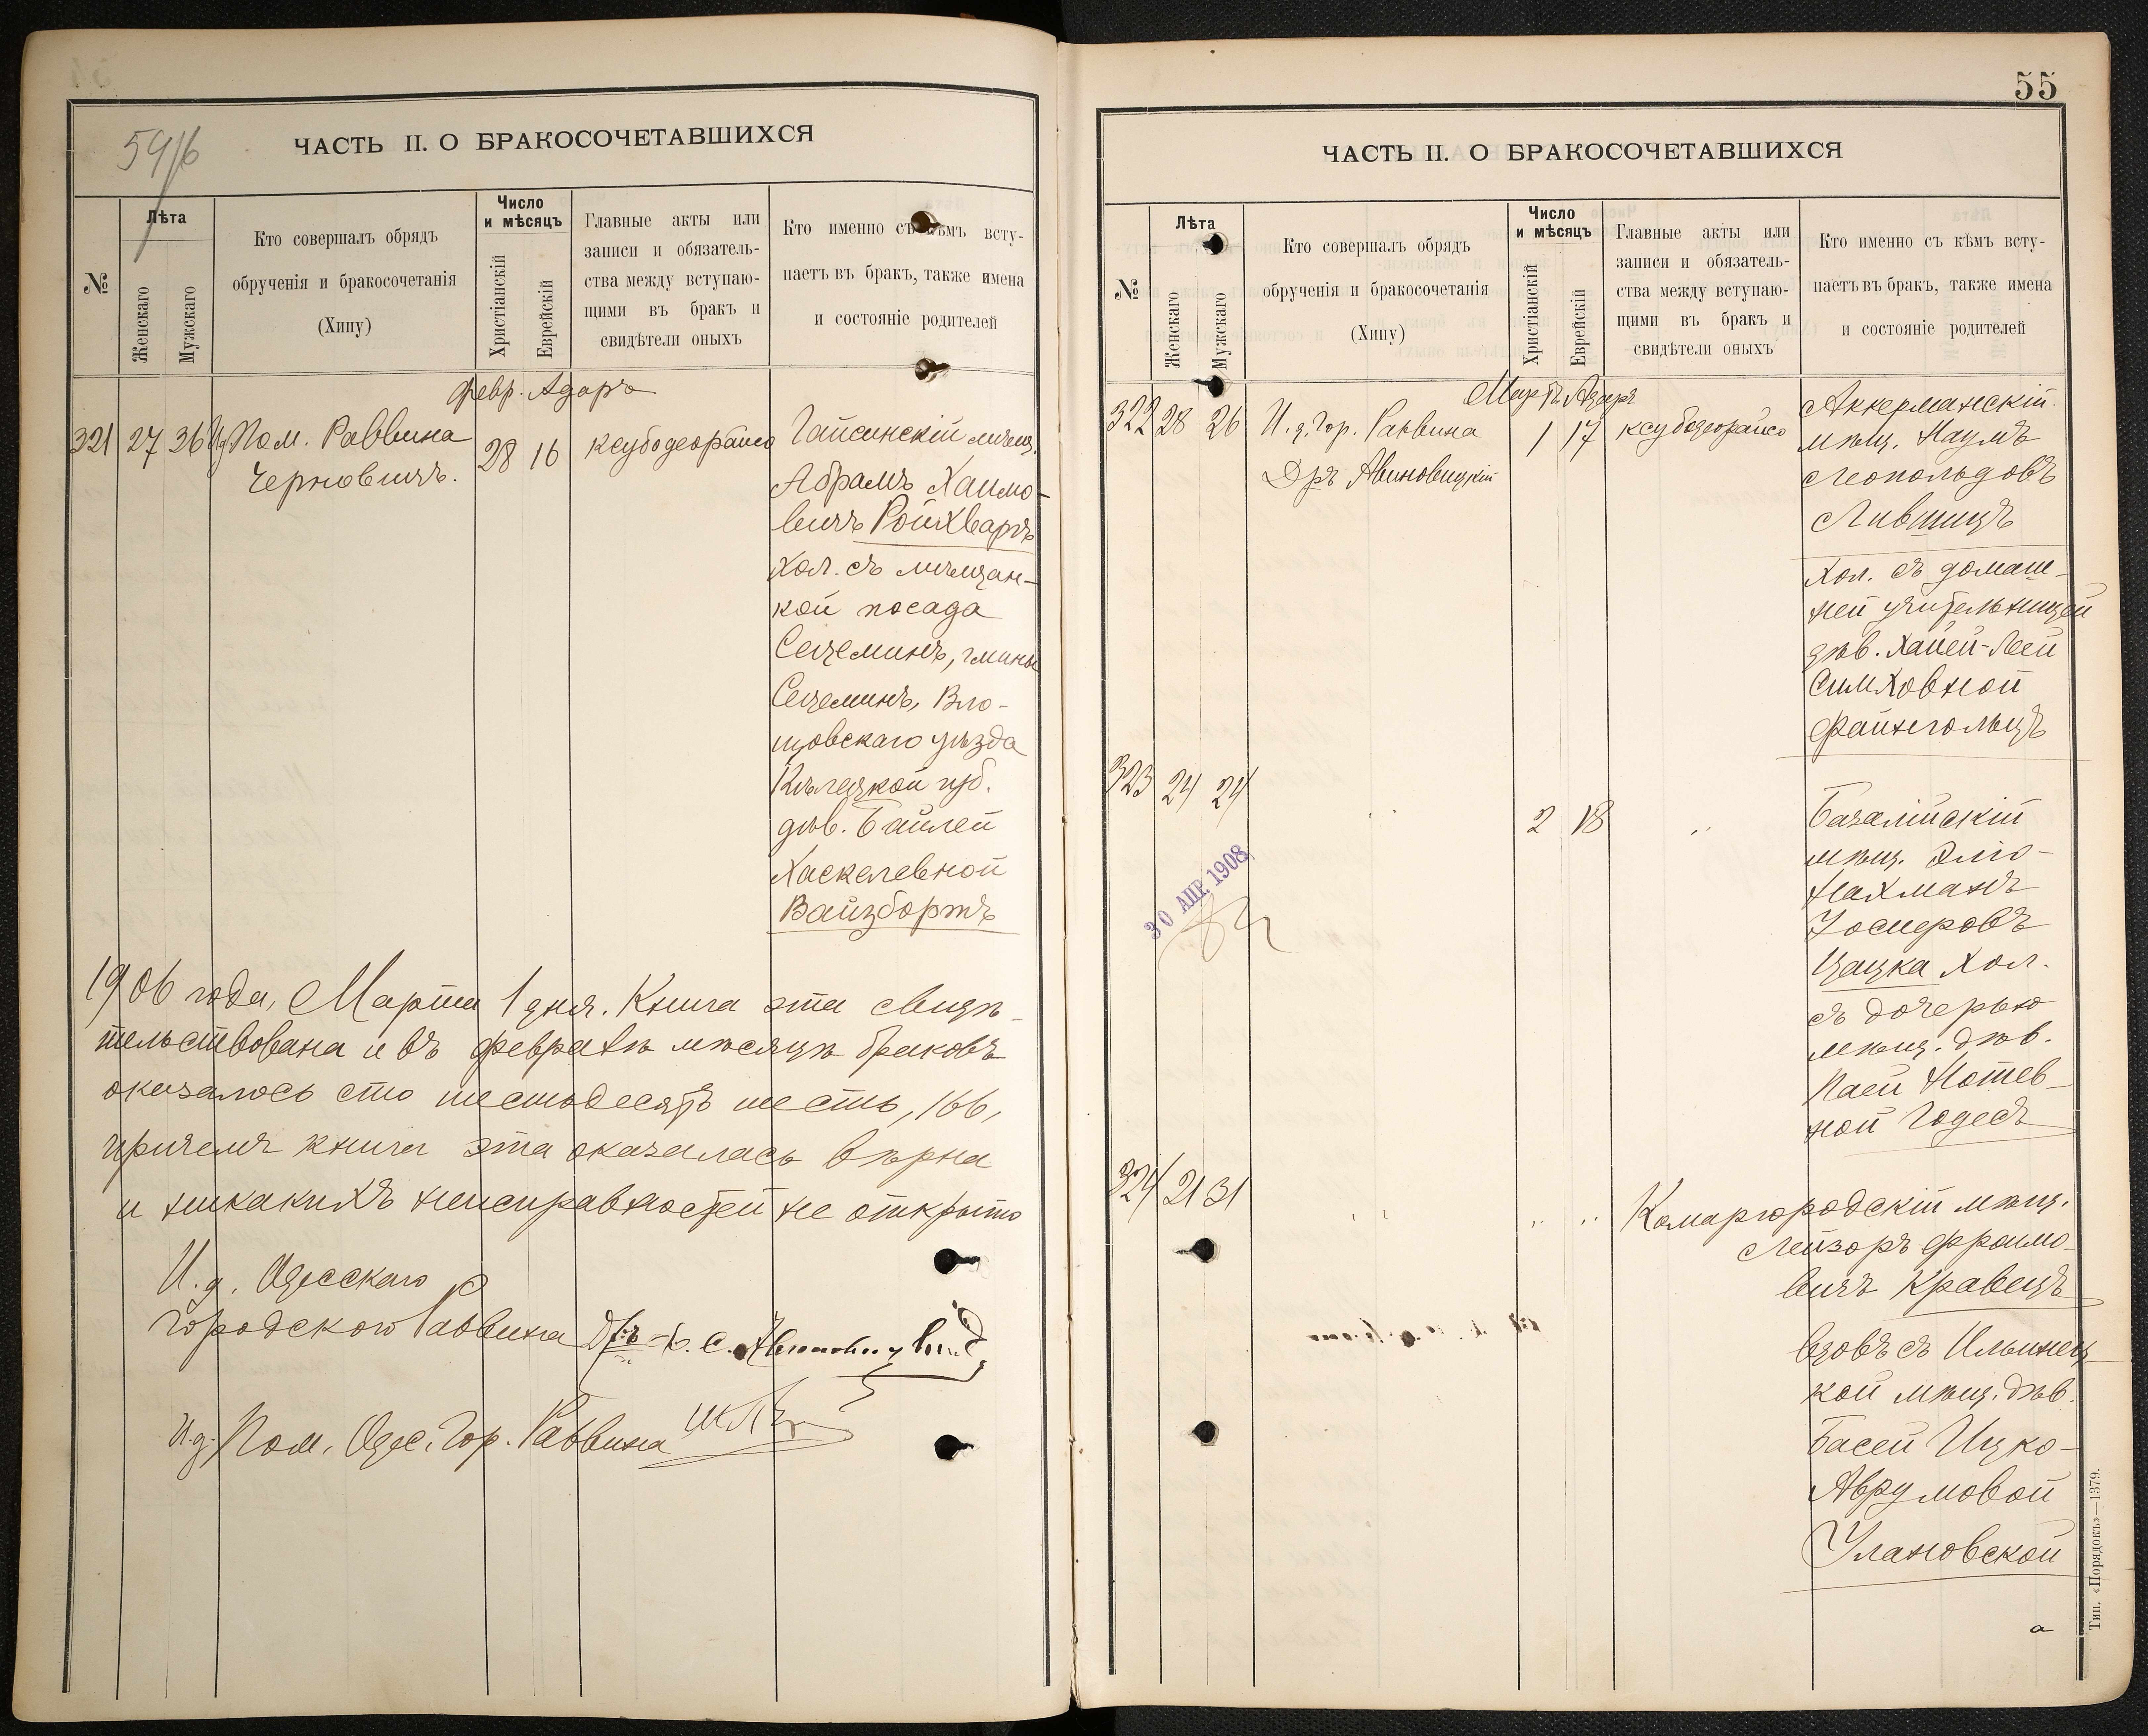 59/6
ЧАСТЬ II. О БРАКОСОЧЕТАВШИХСЯ
№
Лѣта
Женскаго
Мужскаго
Кто совершалъ обрядъ
обрученія и бракосочетанія
(Хипу)
Число
и мѣсяцъ
Христіанскій
Еврейскій
Главные акты или
записи и обязатель-
ства между вступаю-
щими въ бракъ и
свидѣтели оныхъ
Кто именно съ кѣмъ всту-
паетъ въ бракъ, также имена
и состояніе родителей
Февр. Адаръ
321 27 36 И.д. Пом. Раввина
Черновичъ.
28 16
ксубодеорайсо
Гайсинскій мѣщ.
Абрамъ Хаимо-
вичъ Ройхваргъ
хол. съ мѣщан-
кой посада
Сецеминъ, гмины
Сецеминъ, Вло-
щовскаго уѣзда
Кѣлецкой губ.
дѣв. Байлей
Хаскелевной
Вайзбортъ
1906 года, Марта 1 дня. Книга эта свидѣ-
тельствована и въ Февралѣ мѣсяцѣ браковъ
оказалось сто шестьдесятъ шесть, 166,
причемъ книга эта оказалась вѣрна
и никакихъ неисправностей не открыто
И.д. Одесскаго
Городского Раввина Дръ
И.д. Пом. Одес. Гор. Раввина
55
ЧАСТЬ II. О БРАКОСОЧЕТАВШИХСЯ
№
Лѣта
Женскаго
Мужскаго
Кто совершалъ обрядъ
обрученія и бракосочетанія
(Хипу)
Число
и мѣсяцъ
Христіанскій
Еврейскій
Главные акты или
записи и обязатель-
ства между вступаю-
щими въ бракъ и
свидѣтели оныхъ
Кто именно съ кѣмъ всту-
паетъ въ бракъ, также имена
и состояніе родителей
Мартъ Адаръ
322 28 26 И.д. Гор. Раввина
Дръ Авиновицкій
1 17
ксубодеорайсо
Аккерманскій
мѣщ. Наумъ
Леопольдовъ
Лившицъ
Хол. съ домаш-
ней учительницей
дѣв. Хаей-Леей
Симховной
Файнгольцъ
323 24 24
2 18
Базалійскій
мѣщ. Эліо-
Нахманъ
Іосифовъ
Цацка Хол.
съ дочерью
мѣщ. дѣв.
Паей Нотев-
ной Годесъ
30 АПР. 1908
324 21 31
Комаргородскій мѣщ.
Лейзоръ Фроимо-
вичъ Кравецъ
Вдовъ съ Ильинец-
кой мѣщ. дѣв.
Басей Ицко-
Аврумовой
Улановской
Тип. «Порядокъ»—1379.